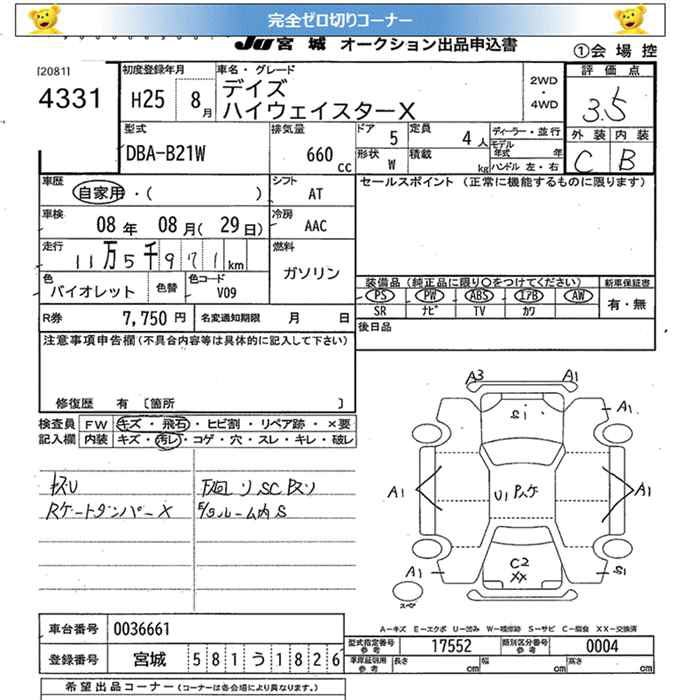 完全ゼロ切りコーナー
JU宮城 オークション出品申込書
①会場控
[2081]
4331
初度登録年月
H25 8月
車名・グレード
デイズ
ハイウェイスターX
2WD
・
4WD
評価点
3.5
外装 内装
C B
型式
DBA-B21W
排気量
660 cc
ドア 5
定員 4人
形状 W
積載 kg
ディーラー・並行
モデル年式 年
ハンドル 左・右
車歴
自家用・( )
シフト
AT
セールスポイント (正常に機能するものに限ります)
車検
08年 08月(29日)
冷房
AAC
走行
11万5千971km
燃料
ガソリン
色
バイオレット
色替
色コード
V09
装備品 (純正品に限り○をつけてください)
新車保証書
PS PW ABS エアB AW
有・無
SR ナビ TV カワ
R券 7,750円
名変通知期限 月 日
後日品
注意事項申告欄(不具合内容等は具体的に記入して下さい)
修復歴 有 〔箇所 〕
検査員記入欄
FW キズ・飛石・ヒビ割・リペア跡・×要
内装 キズ・汚レ・コゲ・穴・スレ・キレ・破レ
Rゲートダンパー×
E/gルーム内S
A3 A1
Si
A1
A1 A1
U1
C2
XX
A1 S1
スペア
A-キズ E-エクボ U-凹み W-補修跡 S-サビ C-腐食 XX-交換済
車台番号 0036661
型式指定番号 参考 17552
類別区分番号 参考 0004
登録番号 宮城 581う1826
車庫証明用 参考 長さ cm 幅 cm 高さ cm
希望出品コーナー(コーナーは各会場により異なります。)